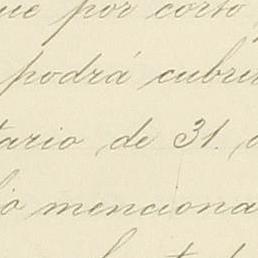 ue por corto
podrá cubrir
tario de 31.
menciona